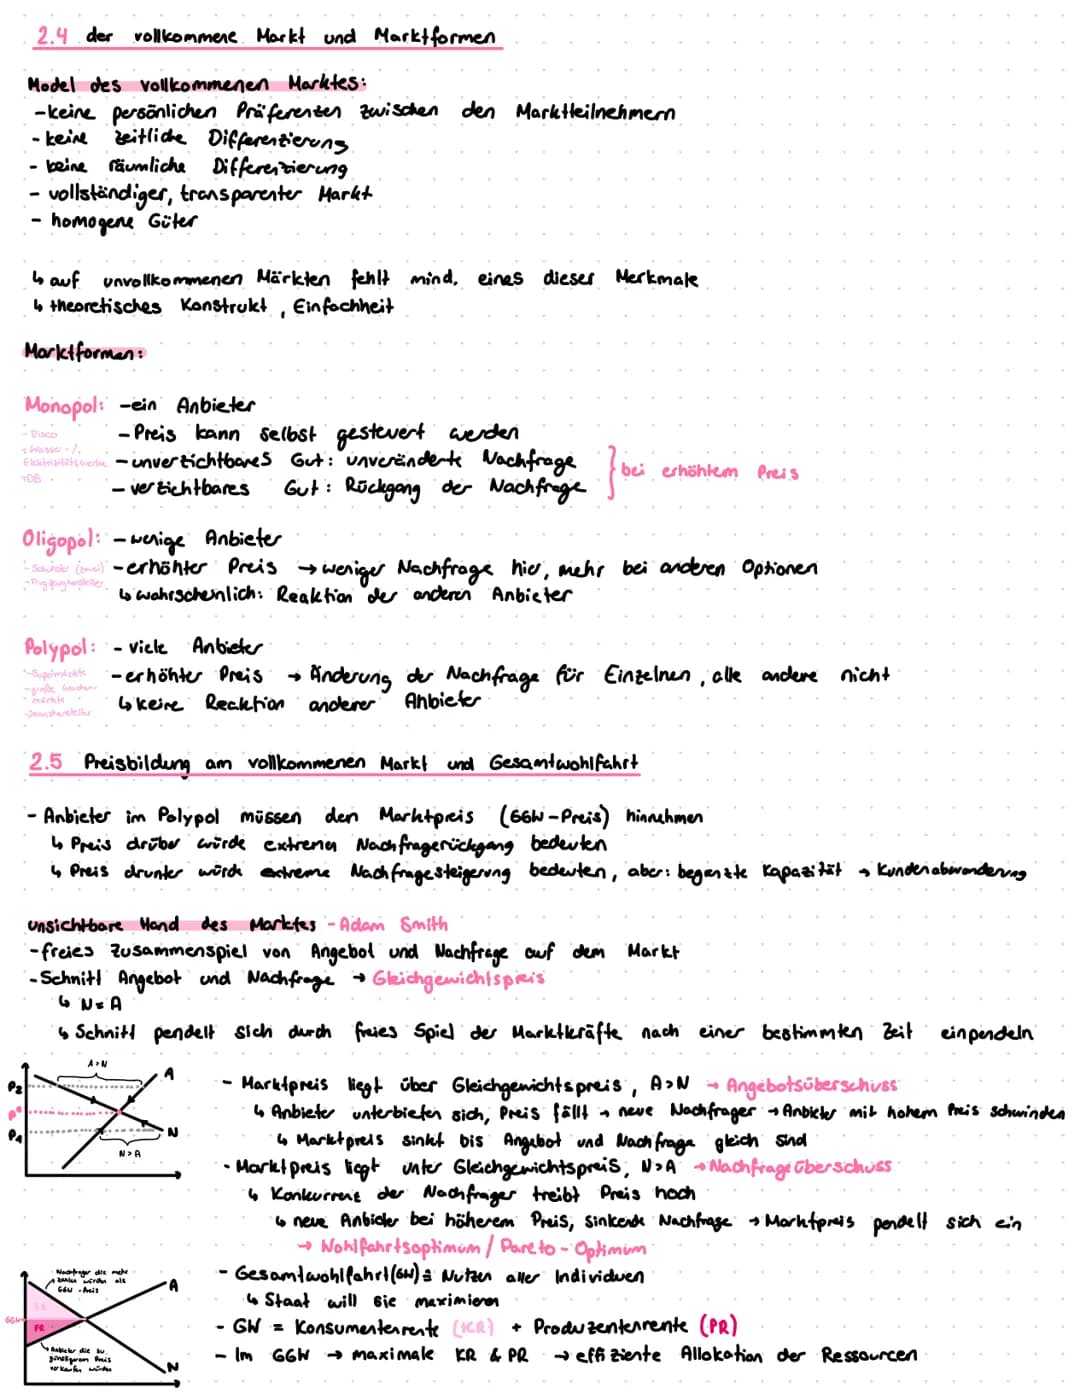 2.4 der vollkommene Markt und Marktformen
Model des vollkommenen Marktes:
- keine persönlichen Präferenzen zwischen den Marktteilnehmern
- keine zeitliche Differenzierung
- keine räumliche Differenzierung
- vollständiger, transparenter Markt
- homogene Güter
↳ auf unvollkommenen Märkten fehlt mind. eines dieser Merkmale
↳ theoretisches Konstrukt, Einfachheit
Marktformen:
Monopol: - ein Anbieter
- Disco
- Preis kann selbst gesteuert werden
- Wasser-/
Elektrizitätswerke
- unverzichtbares Gut: unveränderte Nachfrage
- DB
- verzichtbares Gut: Rückgang der Nachfrage
} bei erhöhtem Preis
Oligopol: - wenige Anbieter
- erhöhter Preis → weniger Nachfrage hier, mehr bei anderen Optionen
- Flugzeughersteller
↳ wahrscheinlich: Reaktion der anderen Anbieter
Polypol: - viele Anbieter
- Supermärkte
- erhöhter Preis → Änderung der Nachfrage für Einzelnen, alle andere nicht
- große Wochen
märkte
↳ keine Reaktion anderer Anbieter
2.5 Preisbildung am vollkommenen Markt und Gesamtwohlfahrt
- Anbieter im Polypol müssen den Marktpreis (GGW-Preis) hinnehmen
↳ Preis drüber würde extremen Nachfragerückgang bedeuten
↳ Preis drunter würde extreme Nachfragesteigerung bedeuten, aber: begrenzte Kapazität → Kundenabwanderung
unsichtbare Hand des Marktes - Adam Smith
- freies Zusammenspiel von Angebot und Nachfrage auf dem Markt
- Schnitt Angebot und Nachfrage → Gleichgewichtspreis
↳ N = A
↳ Schnitt pendelt sich durch freies Spiel der Marktkräfte nach einer bestimmten Zeit einpendeln
A>N
A
P2
P*
P1
N
N>A
- Marktpreis liegt über Gleichgewichtspreis, A>N → Angebotsüberschuss
↳ Anbieter unterbieten sich, Preis fällt → neue Nachfrager → Anbieter mit hohem Preis schwinden
↳ Marktpreis sinkt bis Angebot und Nachfrage gleich sind
- Marktpreis liegt unter Gleichgewichtspreis, N>A → Nachfrageüberschuss
↳ Konkurrenz der Nachfrager treibt Preis hoch
↳ neue Anbieter bei höherem Preis, sinkende Nachfrage → Marktpreis pendelt sich ein
→ Wohlfahrtsoptimum / Pareto-Optimum
- Gesamtwohlfahrt (GW) ≙ Nutzen aller Individuen
↳ Staat will sie maximieren
- GW = Konsumentenrente (KR) + Produzentenrente (PR)
- Im GGW → maximale KR & PR → effiziente Allokation der Ressourcen
Nachfrager die mehr
zahlen würden als
GGW-Preis
A
KR
GGW
PR
Anbieter die zu
günstigerem Preis
verkaufen würden
N